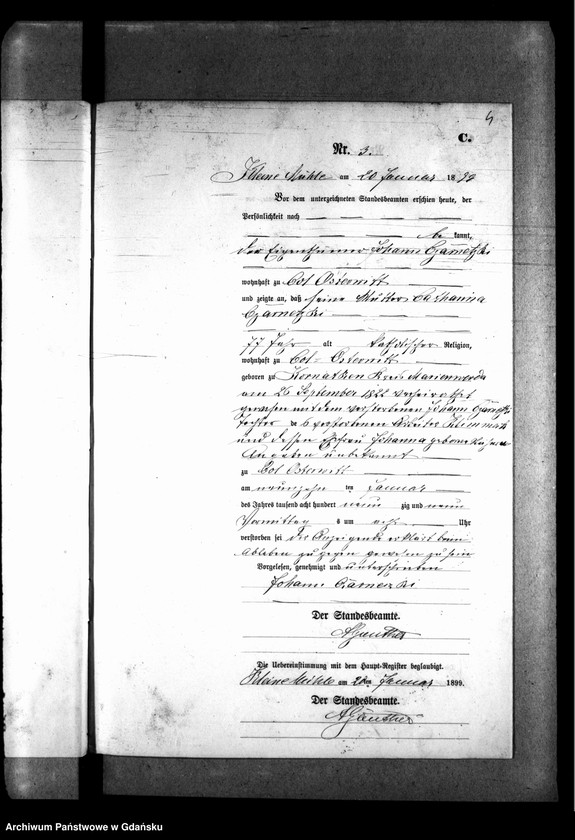 4
C.
Nr. 3.
Kleine Mühle am 20 Januar 1899
Vor dem unterzeichneten Standesbeamten erschien heute, der
Persönlichkeit nach
be kannt,
der Eigenthümer Johann Czarnetzki
wohnhaft zu Col Osterwitt
und zeigte an, daß seine Mutter Catharina
Czarnetzki
77 Jahr alt katholischer Religion,
wohnhaft zu Col-Osterwitt
geboren zu Kreis Marienwerder
am 26 September 1822 verheirathet
gewesen mit dem verstorbenen Johann
Tochter des verstorbenen
und dessen Ehefrau Johanna geborne
Angaben unbekannt
zu Col Osterwitt
am neunzehn ten Januar
des Jahres tausend acht hundert neun zig und neun
Vormittag s um acht Uhr
verstorben sei der Anzeigende erklärt beim
Ableben zugegen gewesen zu sein
Vorgelesen, genehmigt und unterschrieben
Johann Czarnetzki
Der Standesbeamte.
AGünther
Die Uebereinstimmung mit dem Haupt-Register beglaubigt.
Kleine Mühle am 20ten Januar 1899.
Der Standesbeamte.
AGünther
Archiwum Państwowe w Gdańsku